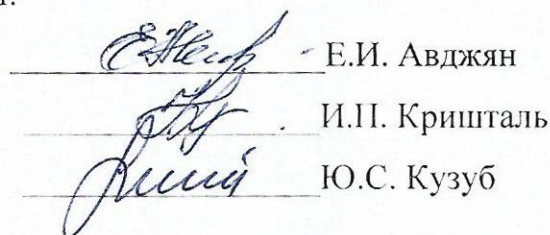 Е.И. Авджян
И.П. Кришталь
Ю.С. Кузуб